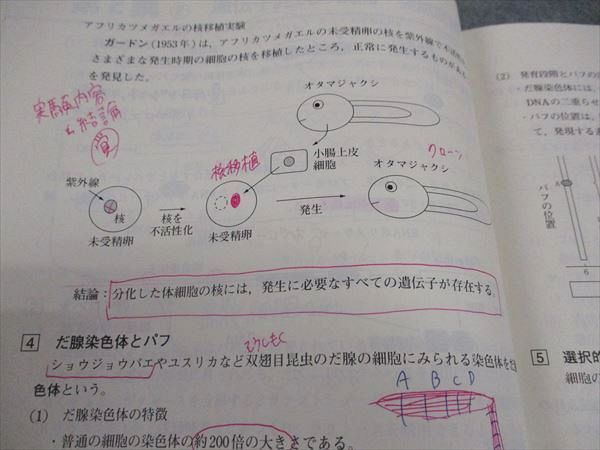 アフリカツメガエルの核移植実験
ガードン(1953年)は、アフリカツメガエルの未受精卵の核を紫外線で不活性
さまざまな発生時期の細胞の核を移植したところ、正常に発生するものがある
を発見した。
実験内容
結論
オタマジャクシ
小腸上皮
細胞
クローン
オタマジャクシ
核移植
紫外線
核
未受精卵
核を
不活性化
未受精卵
発生
結論:分化した体細胞の核には、発生に必要なすべての遺伝子が存在する。
4 だ腺染色体とパフ
そうしもく
ショウジョウバエやユスリカなど双翅目昆虫のだ腺の細胞にみられる染色体を
色体という。
(1) だ腺染色体の特徴
・普通の細胞の染色体の約200倍の大きさである。
A B C D
(2) 発育段階とパフの
・だ腺染色体には、
DNAの二重らせ
・パフの位置は、
て、発現する
パフの位置
A
6
5 選択的
細胞の